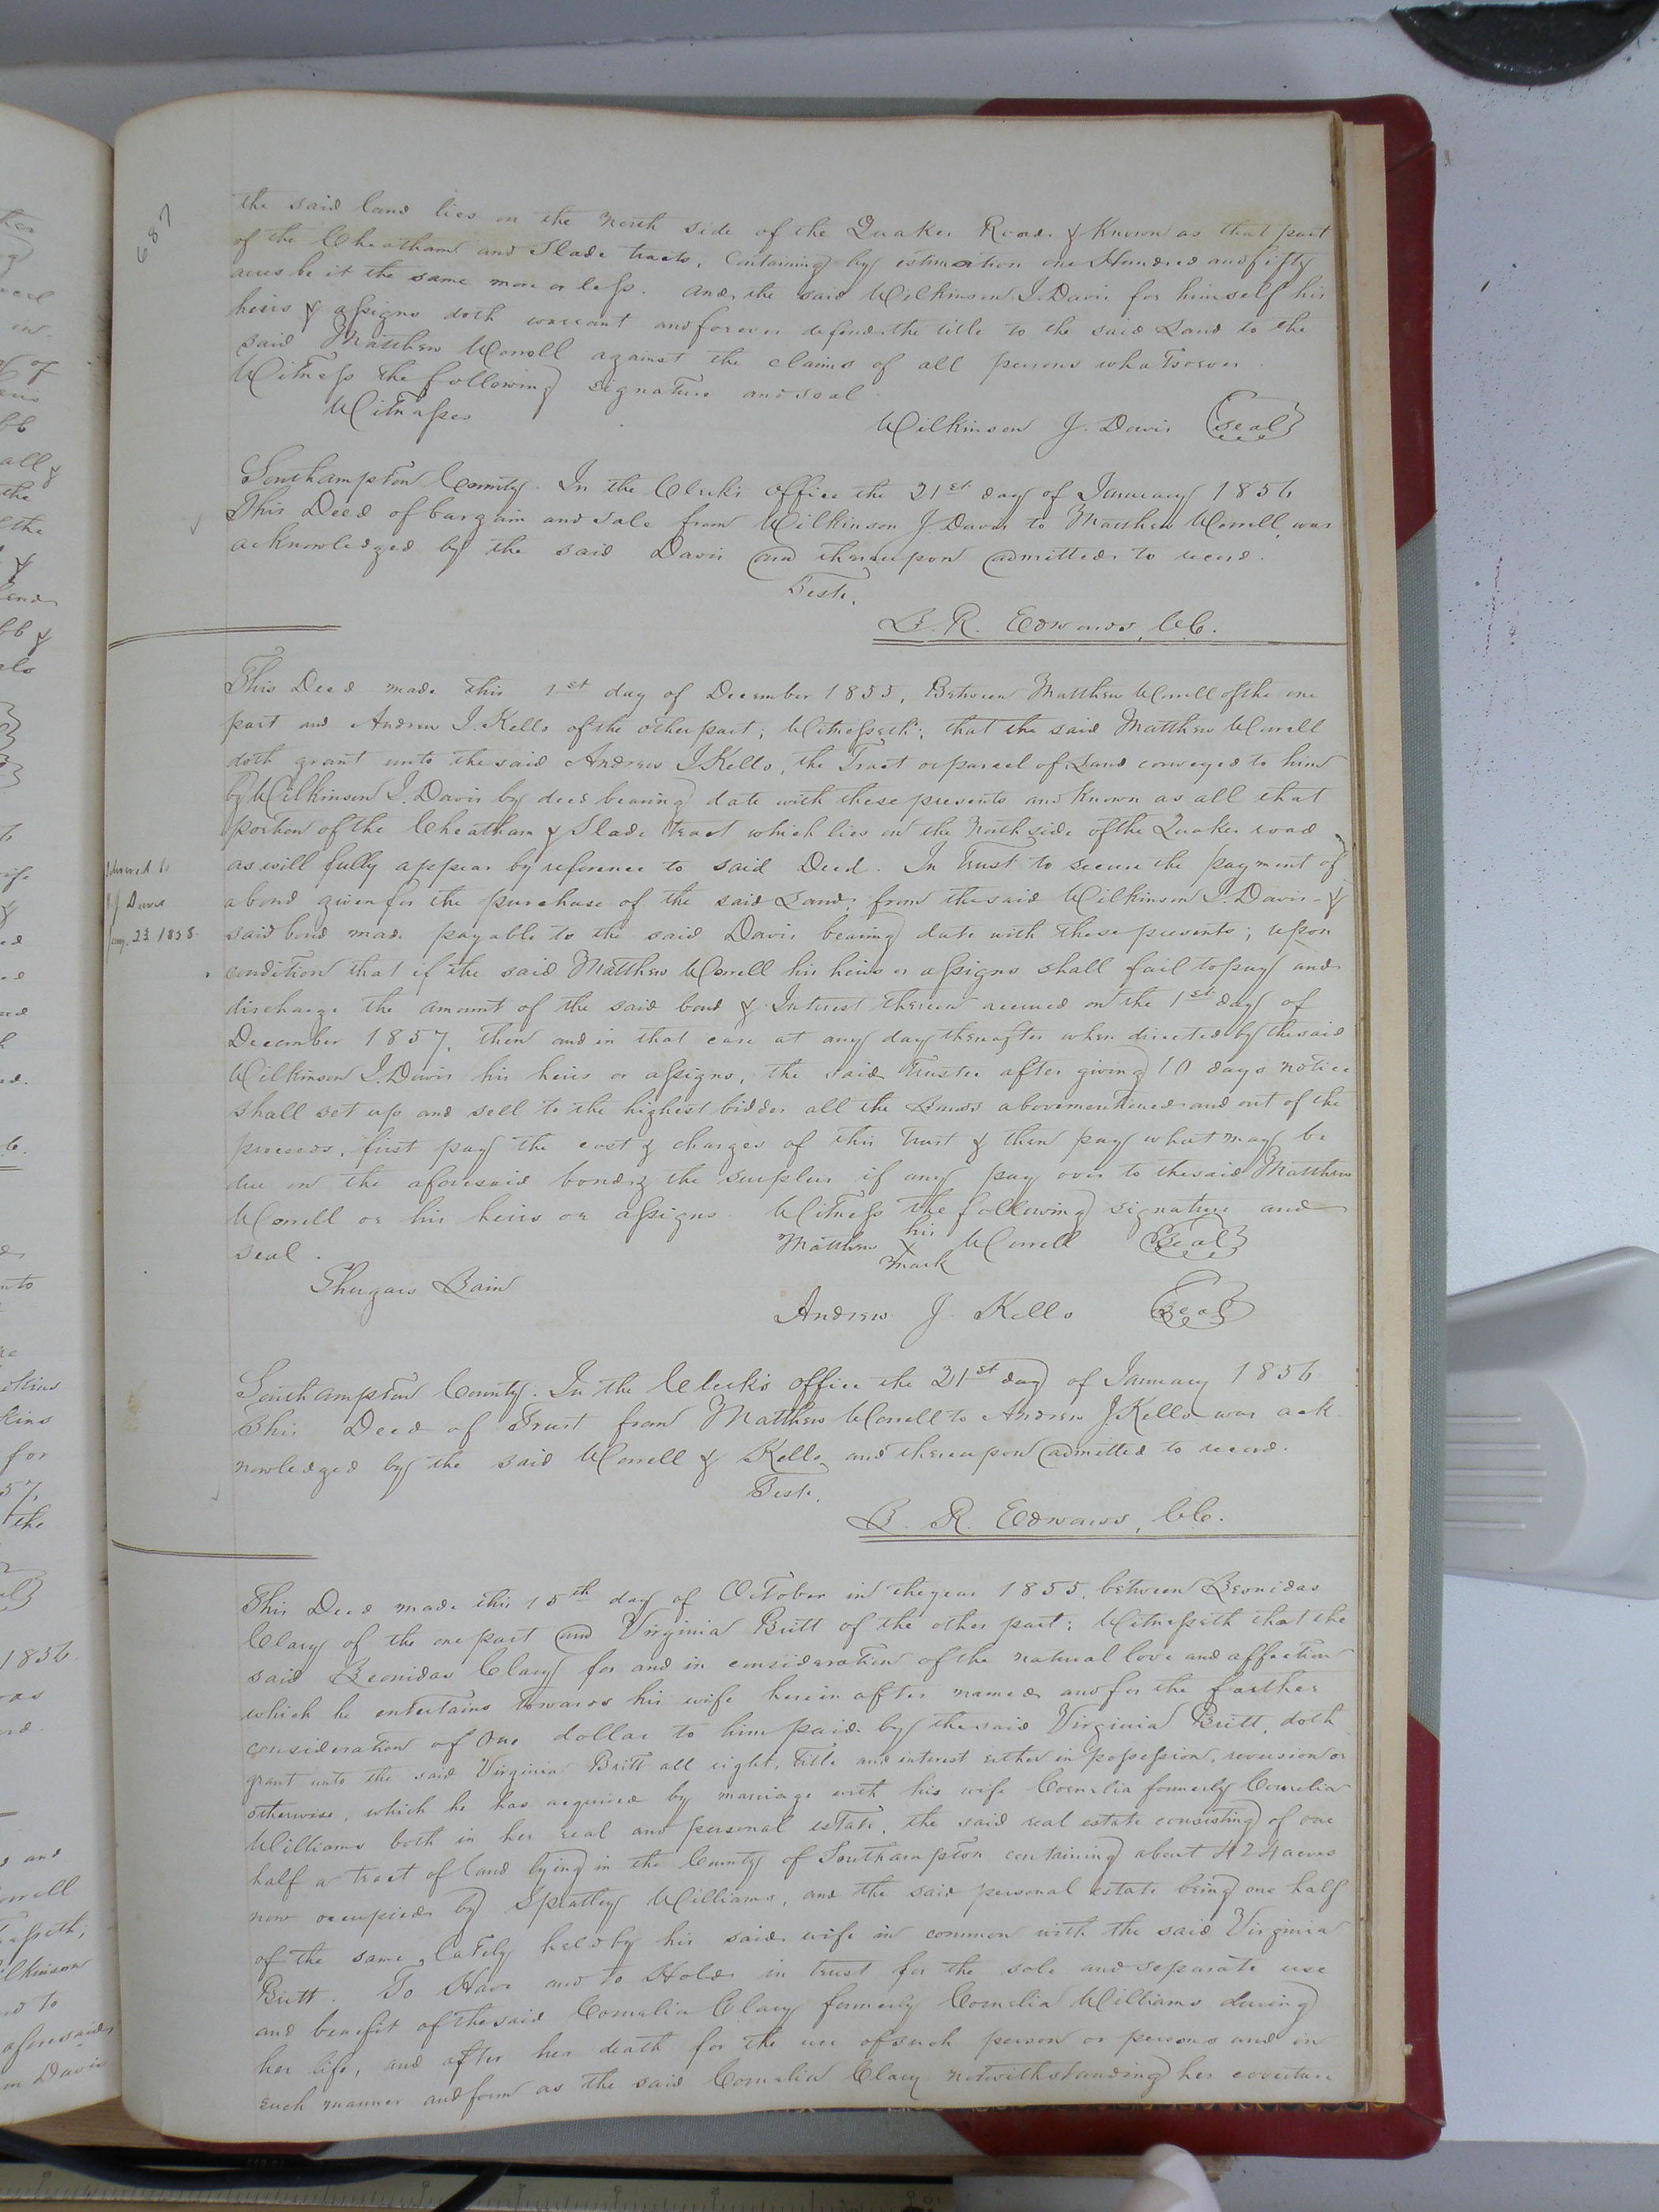 687
the said land lies on the North side of the Quaker Road & Known as that part
of the Cheatham and Slade tracts, Containing by estimation one Hundred and fifty
acres be it the same more or less. and the said Wilkinson J. Davis for himself his
heirs & assigns doth warrant and forever defend the title to the said Land to the
said Matthew Worrell against the claims of all persons whatsoever.
Witness the following signature and seal.
Witnesses
Wilkinson J. Davis (Seal)
Southampton County. In the Clerk's office the 21st day of January 1856
This Deed of bargain and sale from Wilkinson J. Davis to Matthew Worrell, was
acknowledged by the said Davis and thereupon admitted to record.
Teste,
L. R. Edwards, C.C.
This Deed made this 1st day of December 1855, Between Matthew Worrell of the one
part and Andrew J. Kello of the other part; Witnesseth; that the said Matthew Worrell
doth grant unto the said Andrew J Kello, the Tract or parcel of Land conveyed to him
by Wilkinson J. Davis by deed bearing date with these presents and Known as all that
portion of the Cheatham & Slade tract which lies on the North side of the Quaker road
as will fully appear by reference to said Deed. In Trust to secure the payment of
a bond given for the purchase of the said Land, from the said Wilkinson J. Davis - &
said bond made payable to the said Davis bearing date with these presents; upon
condition that if the said Matthew Worrell his heirs or assigns shall fail to pay and
discharge the amount of the said bond & Interest thereon accrued on the 1st day of
December 1857, then and in that case at any day thereafter when directed by the said
Wilkinson J. Davis his heirs or assigns, the said Trustee after giving 10 days notice
shall set up and sell to the highest bidder all the Lands abovementioned and out of the
proceeds, first pay the cost & charges of this Trust & then pay what may be
due on the aforesaid bond, & the surplus if any pay over to the said Matthew
Worrell or his heirs or assigns. Witness the following signature and
seal.
his
Matthew X Worrell (Seal)
mark
Shugars Bain
Andrew J. Kello (Seal)
J Davis
23 1858
Southampton County. In the Clerk's office the 21st day of January 1856
This Deed of Trust from Matthew Worrell to Andrew J. Kello was ack
nowledged by the said Worrell & Kello and thereupon admitted to record.
Teste,
L. R. Edwards, C.C.
This Deed made this 15th day of October in the year 1855, between Leonidas
Clary of the one part and Virginia Britt of the other part; Witnesseth that the
said Leonidas Clary for and in consideration of the natural love and affection
which he entertains towards his wife herein after named and for the farther
consideration of One dollar to him paid by the said Virginia Britt, doth
grant unto the said Virginia Britt all right, title and interest either in possession, reversion or
otherwise, which he has acquired by marriage with his wife Cornelia formerly Cornelia
Williams both in her real and personal estate, the said real estate consisting of one
half a tract of land lying in the County of Southampton containing about 424 acres
now occupied by Spratley Williams, and the said personal estate being one half
of the same, lately held by his said wife in common with the said Virginia
Britt. To Have and to Hold in trust for the sole and separate use
and benefit of the said Cornelia Clary formerly Cornelia Williams during
her life, and after her death for the use of such person or persons and in
such manner and form as the said Cornelia Clary notwithstanding her coverture